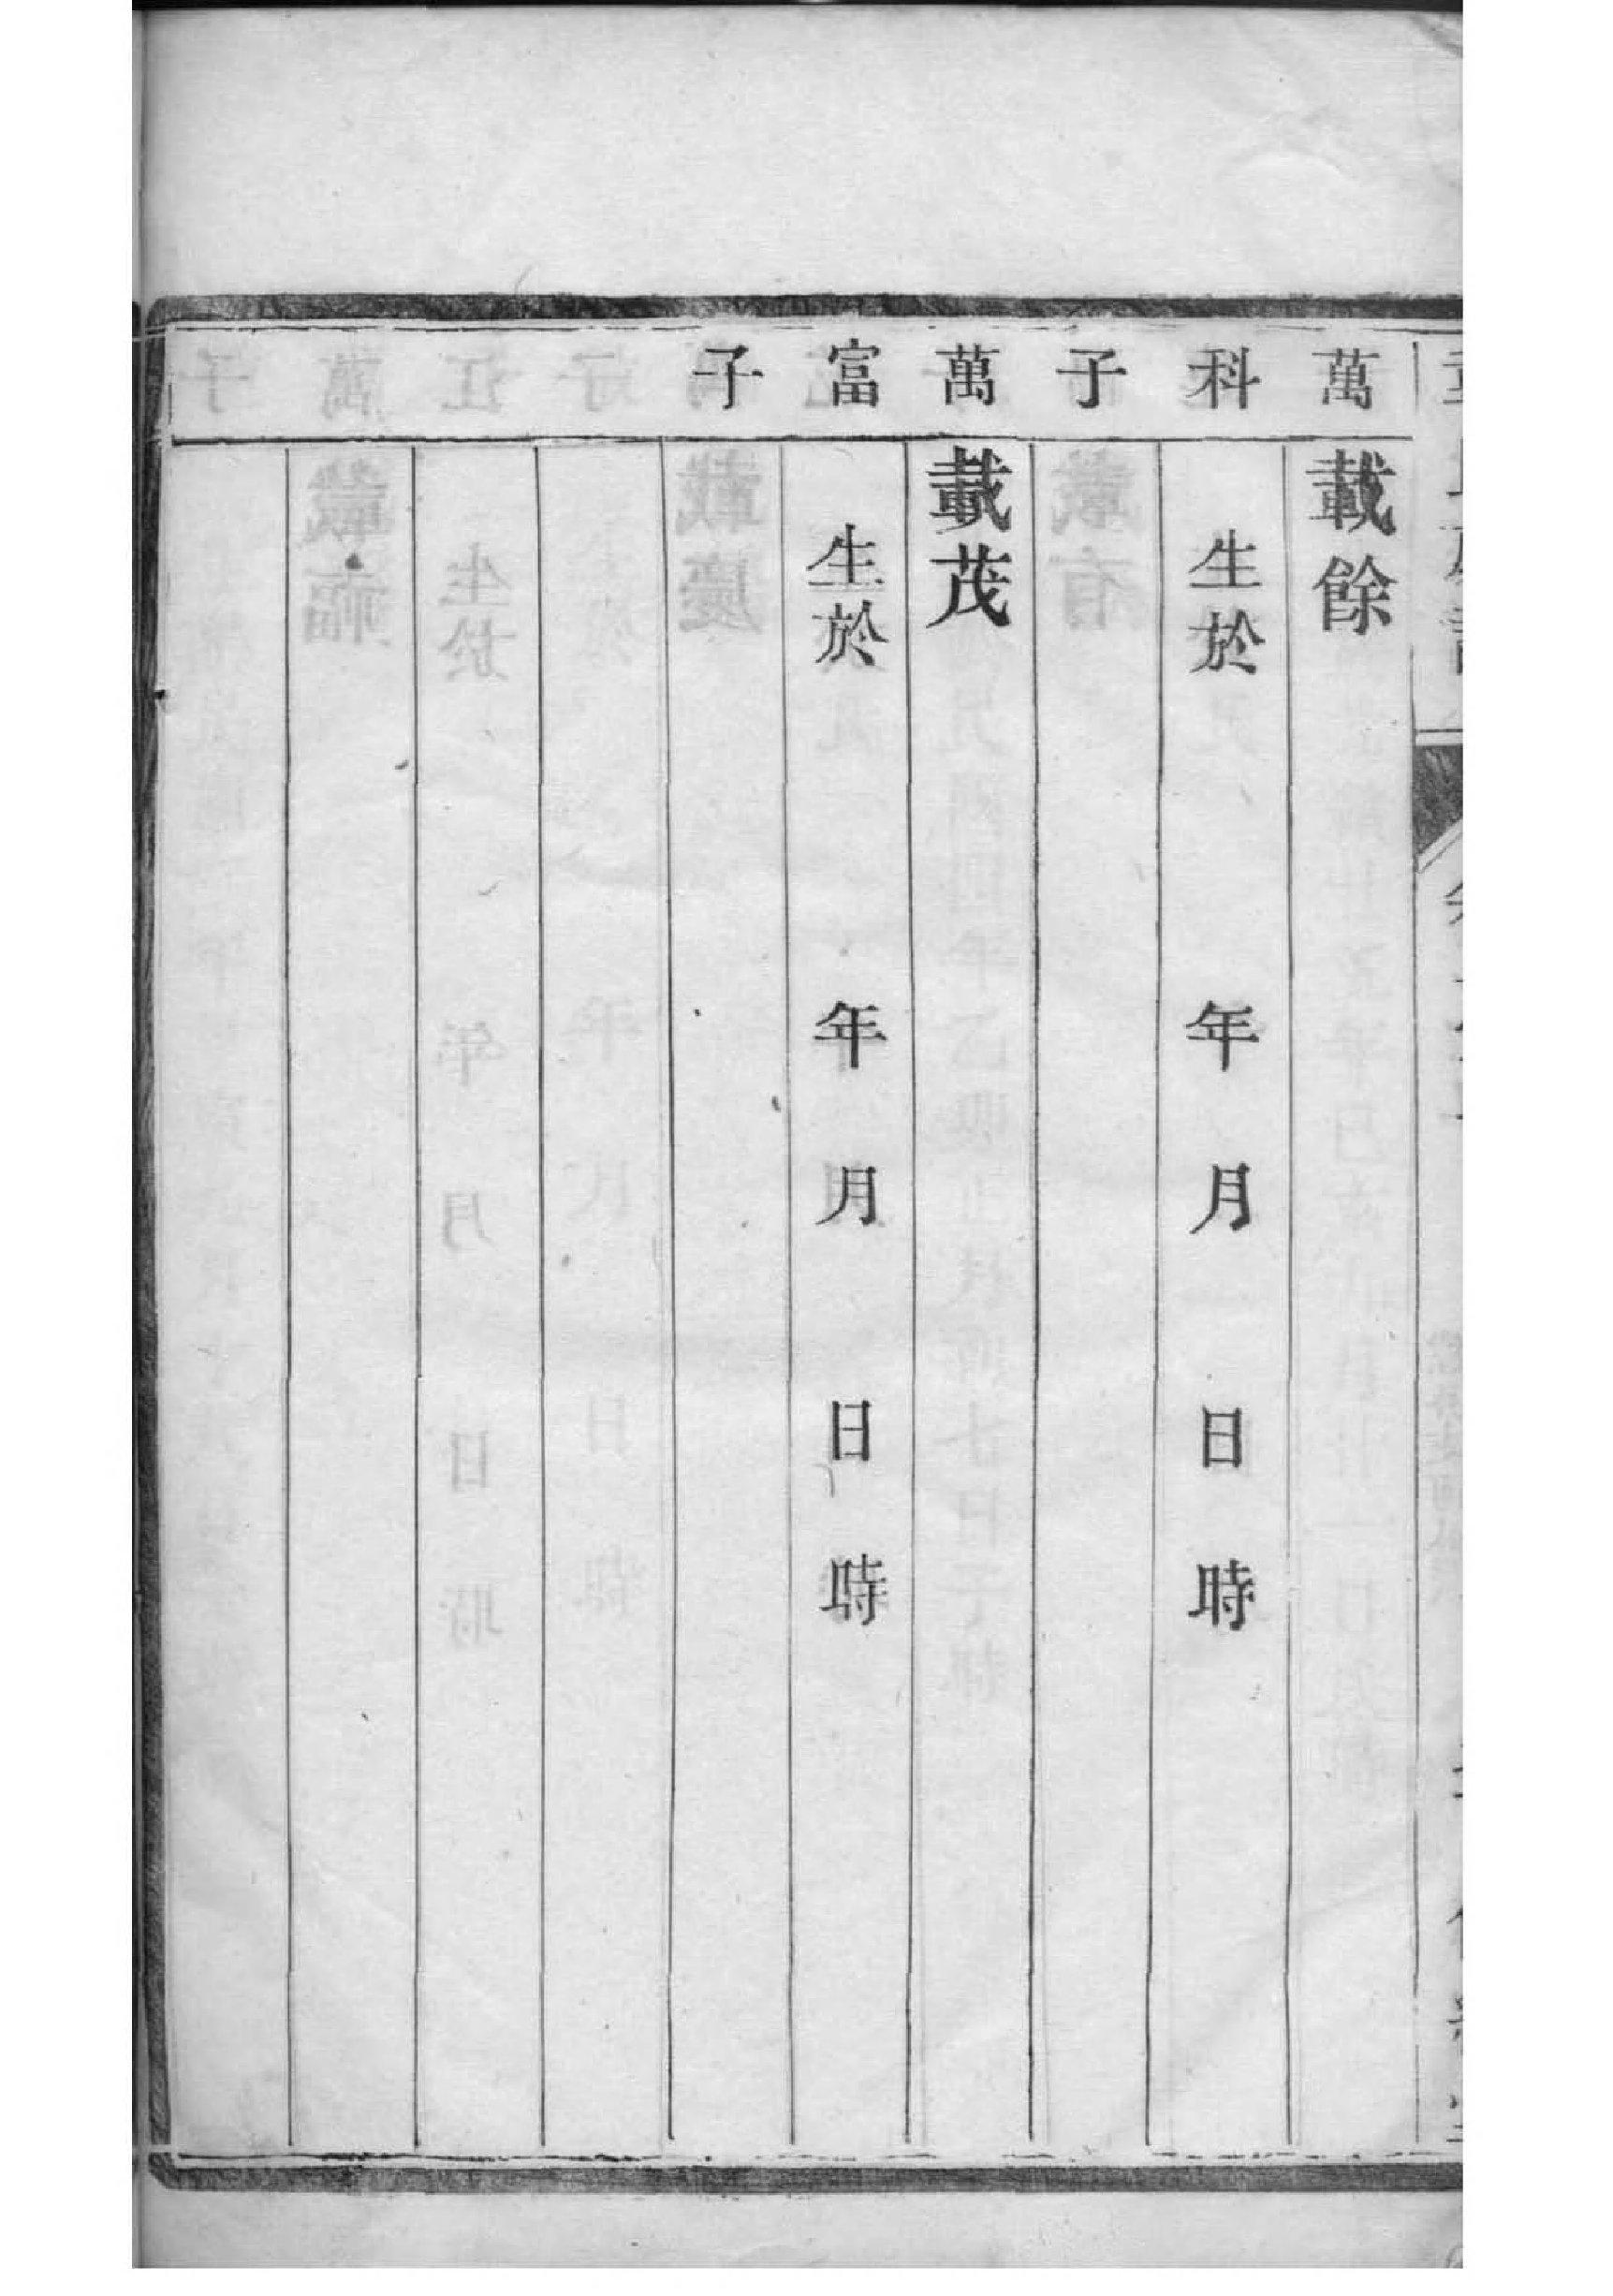 萬科子
載餘
生於 年 月 日 時
萬富子
載茂
生於 年 月 日 時